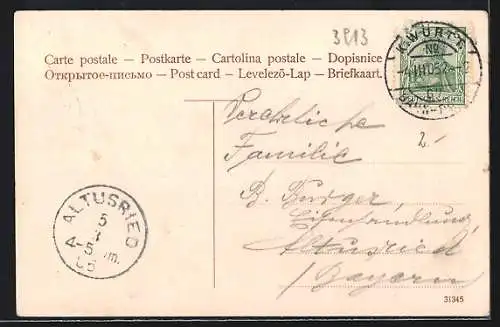 3813
Carte postale — Postkarte — Cartolina postale — Dopisnice
Открытое-письмо — Post card — Levelező-Lap — Briefkaart.
K.WÜRTT.
No
BAHNPOST
REICH
2.-
Verehrliche
Familie
B. Burger,
Eisenhandlung,
Altusried
/Bayern
ALTUSRIED
5
4-5 Nm.
05
31345